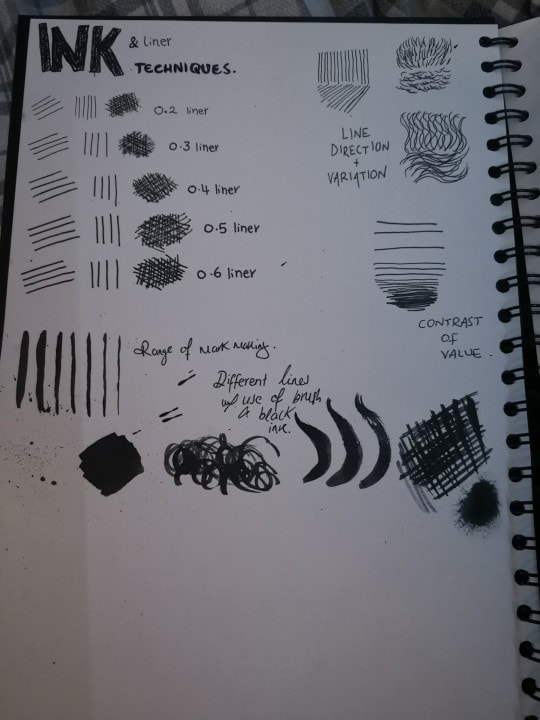 INK & Liner
TECHNIQUES.
0.2 liner
0.3 liner
0.4 liner
0.5 liner
0.6 liner
LINE
DIRECTION
+
VARIATION
CONTRAST
OF
VALUE.
Range of mark making.
Different lines
w/ use of brush
& black
ink.